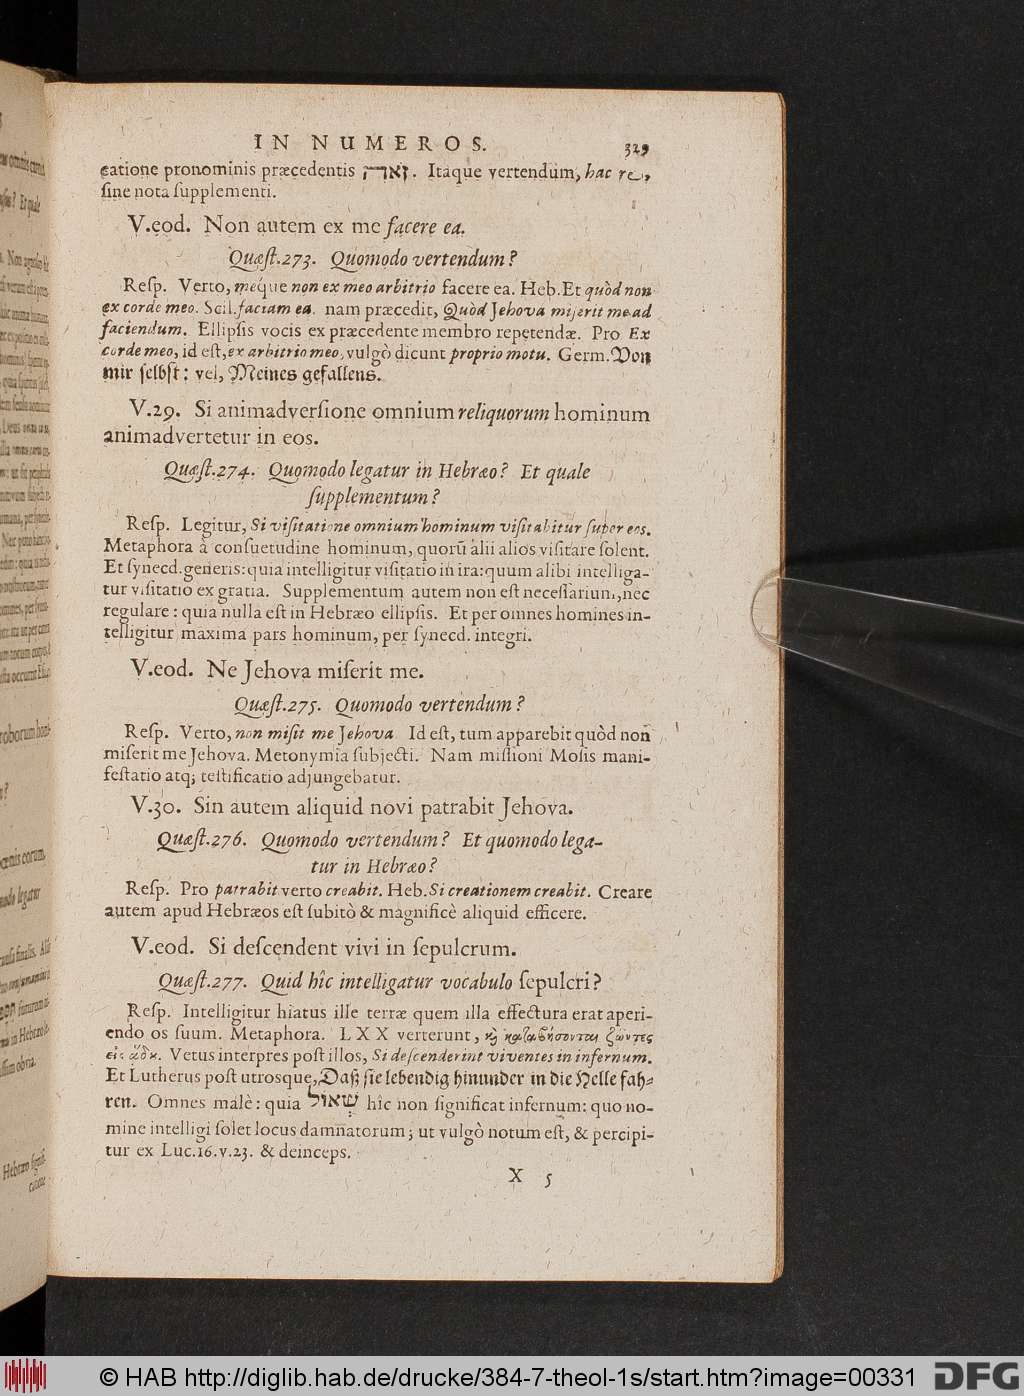 IN NUMEROS. 329
catione pronominis præcedentis זאת. Itaque vertendum, hac re,
sine nota supplementi.
V.eod. Non autem ex me facere ea.
Quæst.273. Quomodo vertendum?
Resp. Verto, meque non ex meo arbitrio facere ea. Heb. Et quòd non
ex corde meo. Scil. faciam ea. nam præcedit, Quòd Jehova miserit me ad
faciendum. Ellipsis vocis ex præcedente membro repetendæ. Pro Ex
corde meo, id est, ex arbitrio meo, vulgò dicunt proprio motu. Germ. Von
mir selbst: vel, Meines gefallens.
V.29. Si animadversione omnium reliquorum hominum
animadvertetur in eos.
Quæst.274. Quomodo legatur in Hebræo? Et quale
supplementum?
Resp. Legitur, Si visitatione omnium hominum visitabitur super eos.
Metaphora à consuetudine hominum, quorū alii alios visitare solent.
Et synecd. generis: quia intelligitur visitatio in ira: quum alibi intelliga-
tur visitatio ex gratia. Supplementum autem non est necessarium, nec
regulare: quia nulla est in Hebræo ellipsis. Et per omnes homines in-
telligitur maxima pars hominum, per synecd. integri.
V.eod. Ne Jehova miserit me.
Quæst.275. Quomodo vertendum?
Resp. Verto, non misit me Jehova Id est, tum apparebit quòd non
miserit me Jehova. Metonymia subjecti. Nam missioni Mosis mani-
festatio atq; testificatio adjungebatur.
V.30. Sin autem aliquid novi patrabit Jehova.
Quæst.276. Quomodo vertendum? Et quomodo lega-
tur in Hebræo?
Resp. Pro patrabit verto creabit. Heb. Si creationem creabit. Creare
autem apud Hebræos est subitò & magnificè aliquid efficere.
V.eod. Si descendent vivi in sepulcrum.
Quæst.277. Quid hîc intelligatur vocabulo sepulcri?
Resp. Intelligitur hiatus ille terræ quem illa effectura erat aperi-
endo os suum. Metaphora. LXX verterunt, ϗ καταβήσονται ζῶντες
εἰς ᾅδη. Vetus interpres post illos, Si descenderint viventes in infernum.
Et Lutherus post utrosque, Daß sie lebendig hinunder in die Helle fah-
ren. Omnes malè: quia שְׁאוֹל hîc non significat infernum: quo no-
mine intelligi solet locus damnatorum; ut vulgò notum est, & percipi-
tur ex Luc.16.v.23. & deinceps.
X 5
© HAB http://diglib.hab.de/drucke/384-7-theol-1s/start.htm?image=00331
DFG